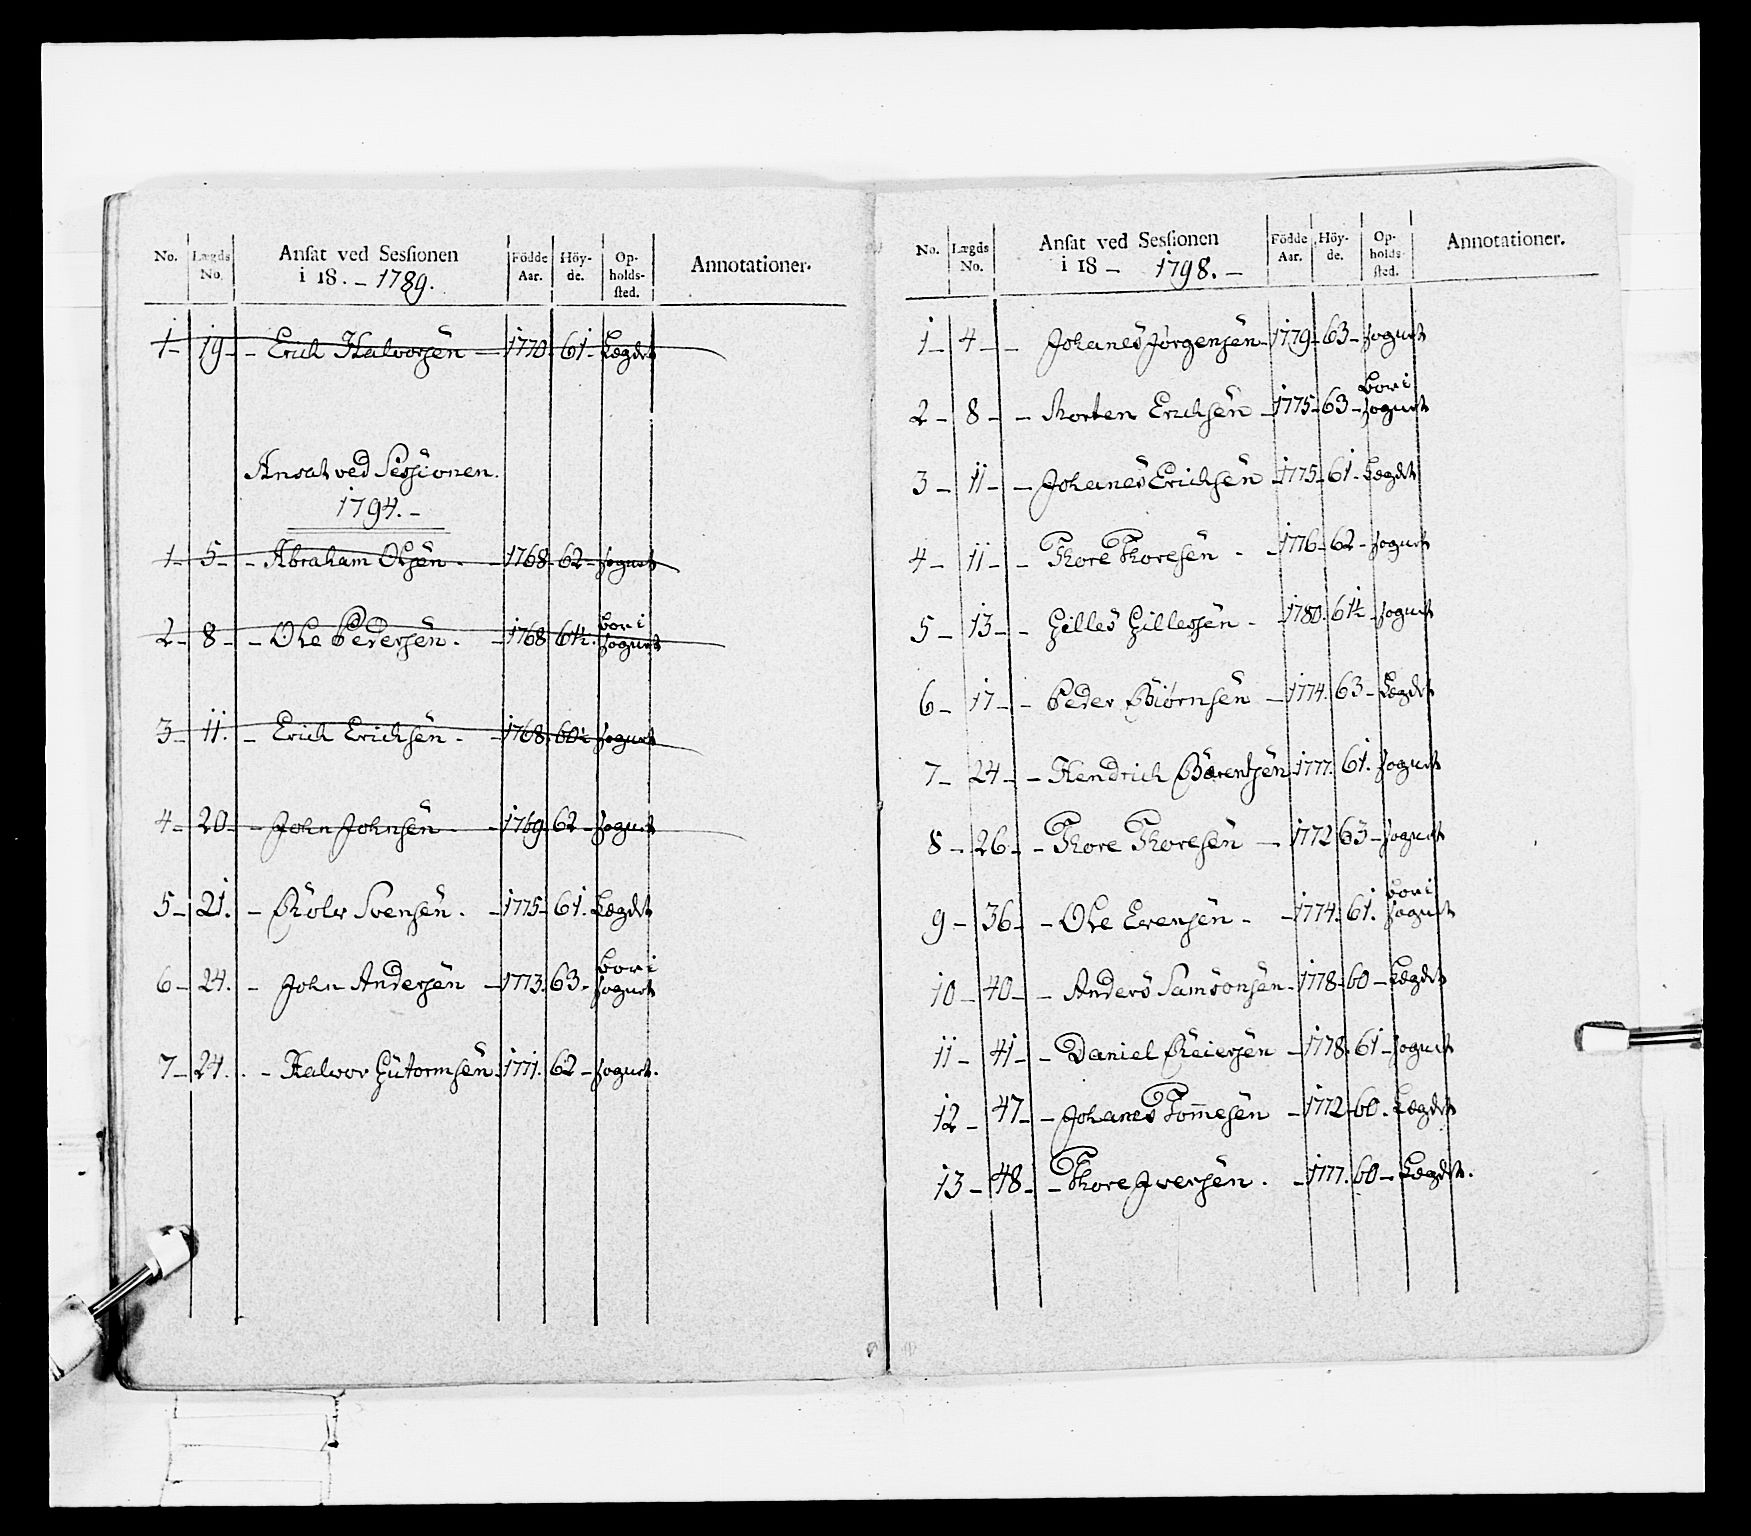 No. Lægds No. Ansat ved Sessionen i 18. - 1789. Födde Aar. Höy-de. Op-holds-sted. Annotationer.
1 - 19 - - Erich Halvorsen - 1770 - 61 - Lægdet
Ansat ved Sessionen.
1794. -
1 - 5 - - Abraham Olsen - - 1768 - 62 - sogurt
2 - 8 - - Ole Pedersen. - 1768 61½. bor i sogurt
3 - 11. - Erich Erichsen - - 1768. sogurt
4 - 20 - - John Johnsen - - 1769 62 - sogurt
5 - 21. - Rolv Svensen. - 1775 - 61. Lægdet
6 - 24. - John Andersen - 1773. 63 - bor i sogurt
7 - 24. - Halvor Gütormsen. 1771. 62 - sogurt.
No. Lægds No. Ansat ved Sessionen i 18 - 1798. - Födde Aar. Höy-de. Op-holds-sted. Annotationer.
1 - 4 - - Johanes Jørgensen - 1779 - 63 - sogurt
2 - 8 - - Morten Erichsen - 1775 - 63 - bor i sogurt
3 - 11 - - Johanes Erichsen - 1775 - 61. Lægdet
4 - 11 - - Thore Thoresen - - 1776 - 62 - sogurt
5 - 13 - - Gilles Gillessen - - 1780. 61½ - sogurt
6 - 17 - - Peder Biørnsen - 1774. 63 - Lægdet
7 - 24 - - Hendrich Bærentsen 1777. 61. sogurt
8 - 26 - - Thore Thoresen - 1772 63 - sogurt
9 - 36 - - Ole Evensen - - 1774. 61. bor i sogurt
10 - 40 - - Anders Samsonsen - 1778 - 60 - Lægdet
11 - 41 - - Daniel Reiersen - 1778. 61 - sogurt
12 - 47 - - Johanes Tom̅esen - 1772 - 60. Lægdet
13 - 48 - - Thore Iversen. - 1777. 60 - Lægdet.